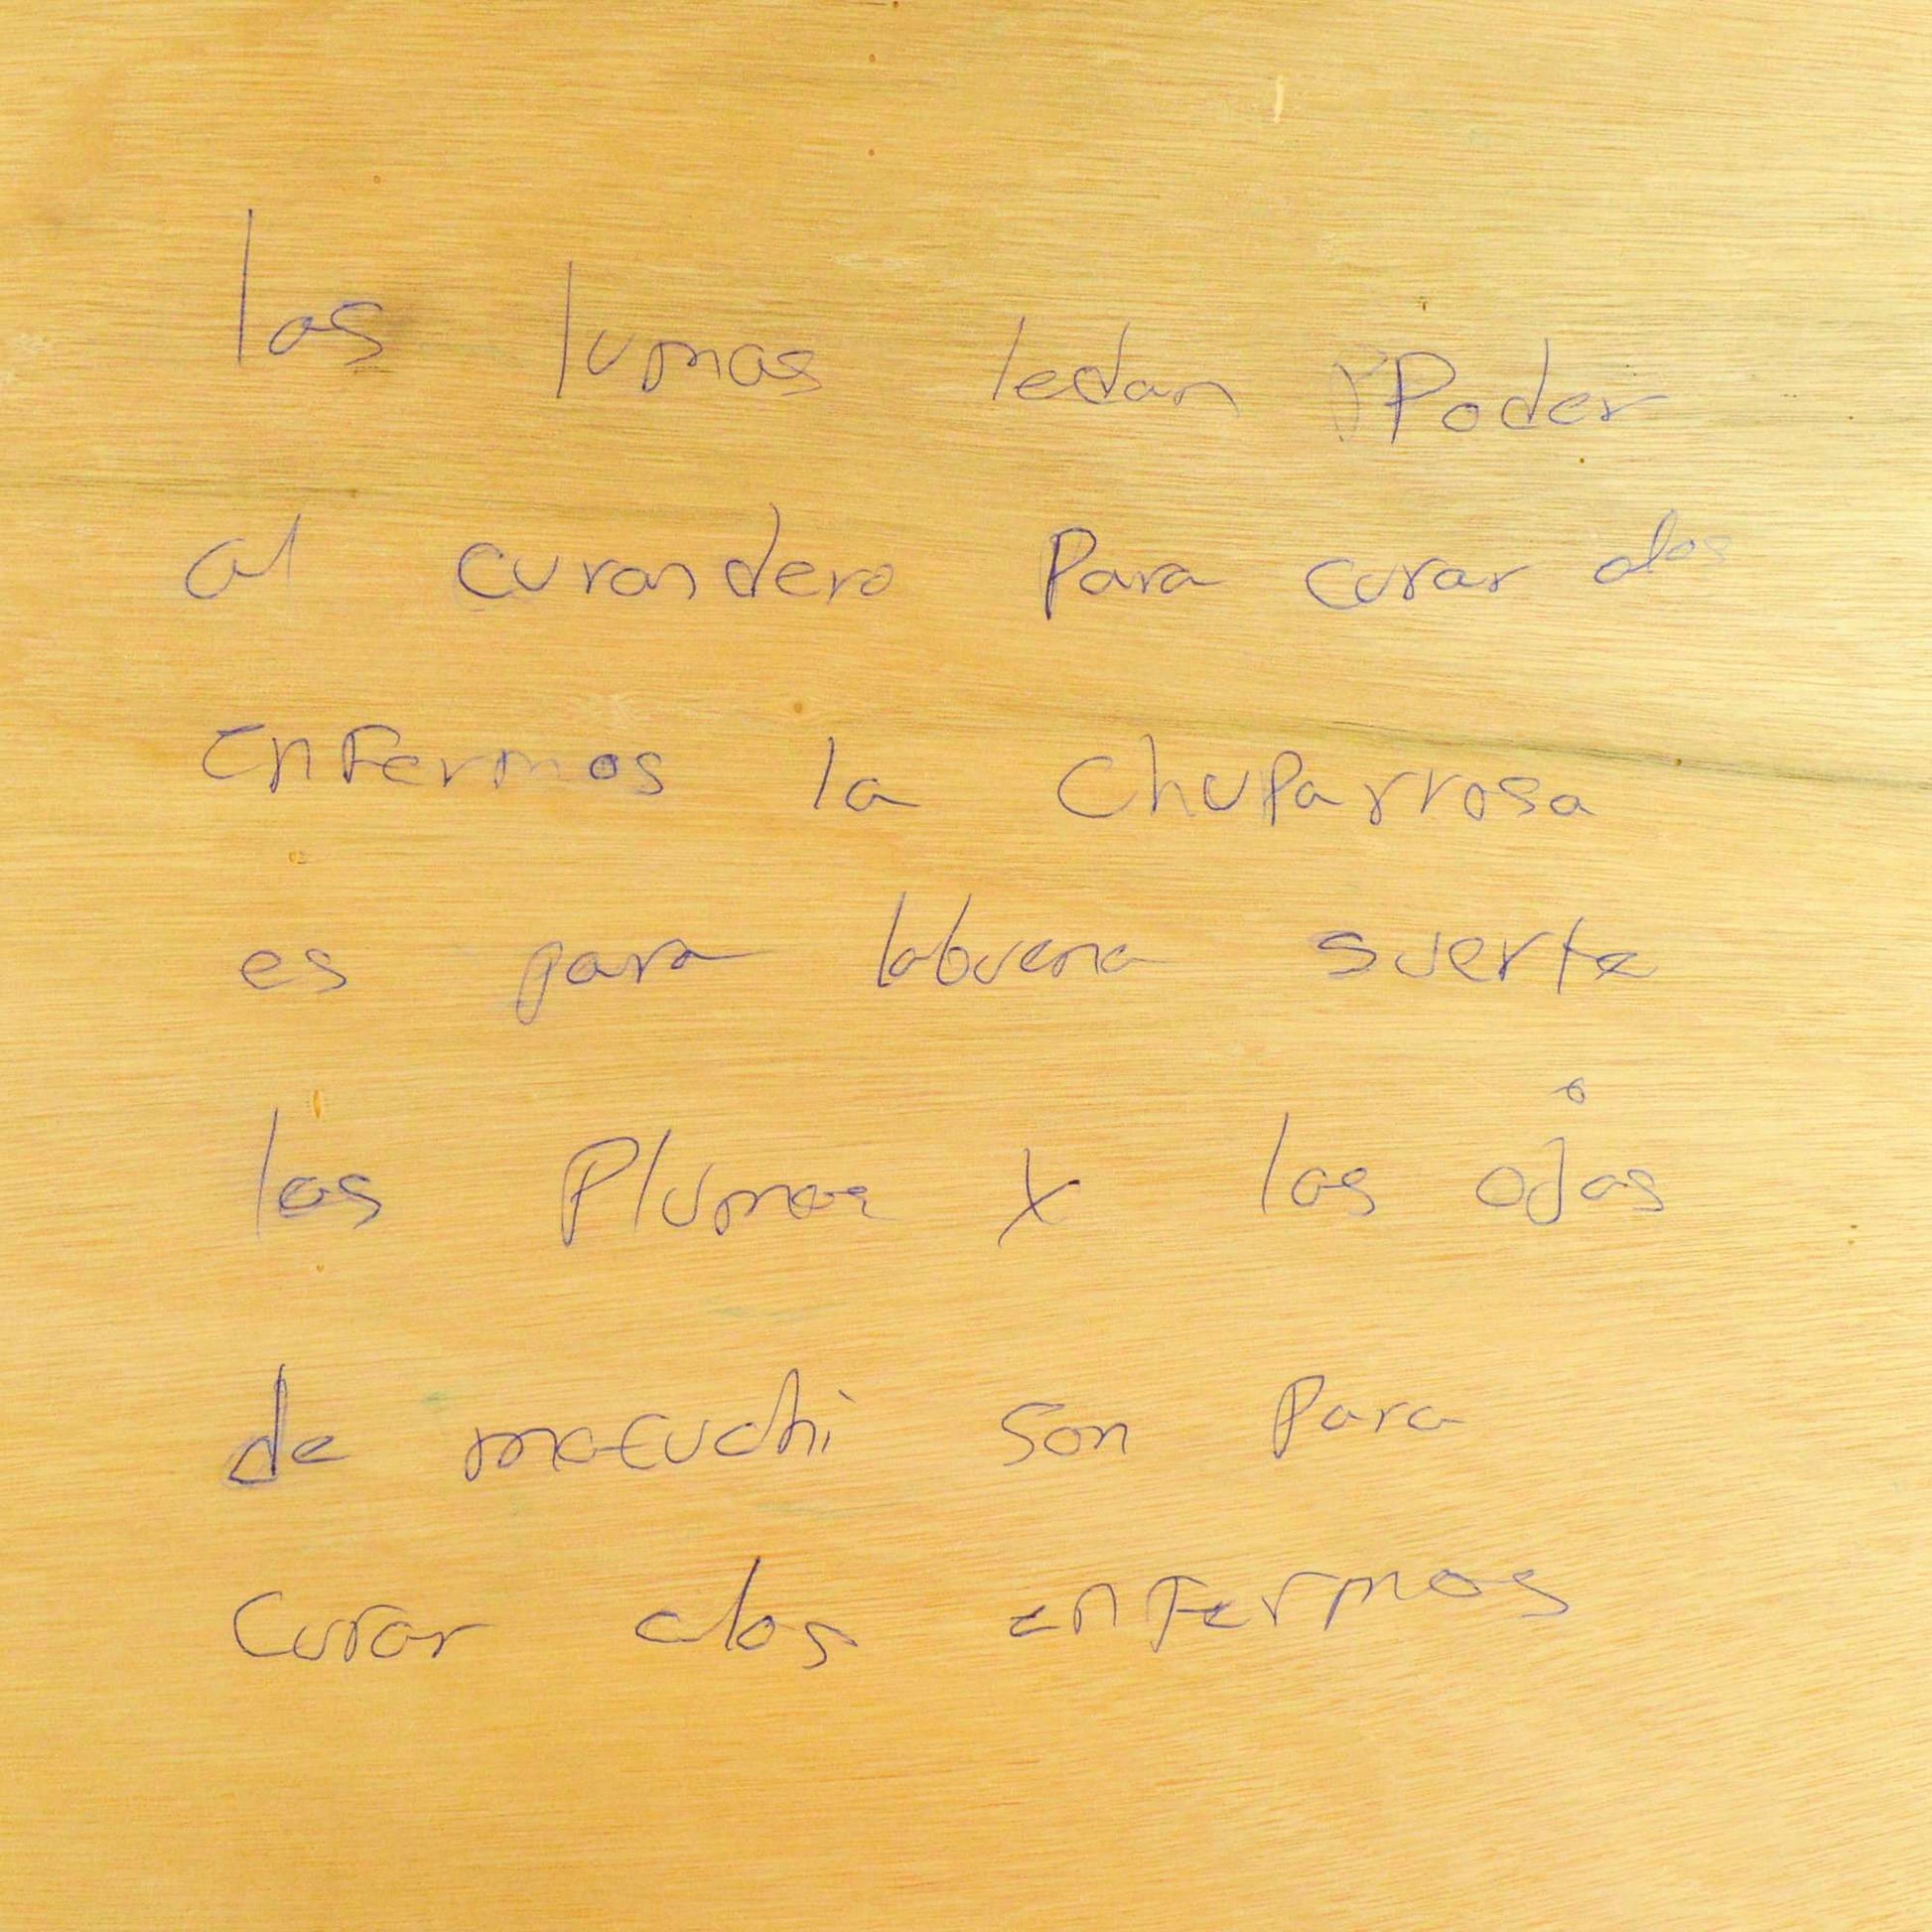 las lumas ledan Poder
al curandero Para curar alos
enfermos la chuparrosa
es para labuena suerte
las Plumas y las ojas
de macuchi son Para
curar alos enfermos